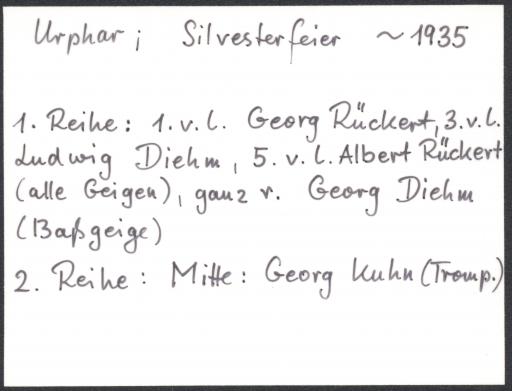 Urphar; Silvesterfeier ~1935
1. Reihe: 1. v. l. Georg Rückert, 3. v. l.
Ludwig Diehm, 5. v. l. Albert Rückert
(alle Geigen), ganz r. Georg Diehm
(Baßgeige)
2. Reihe: Mitte: Georg Kuhn (Tromp.)